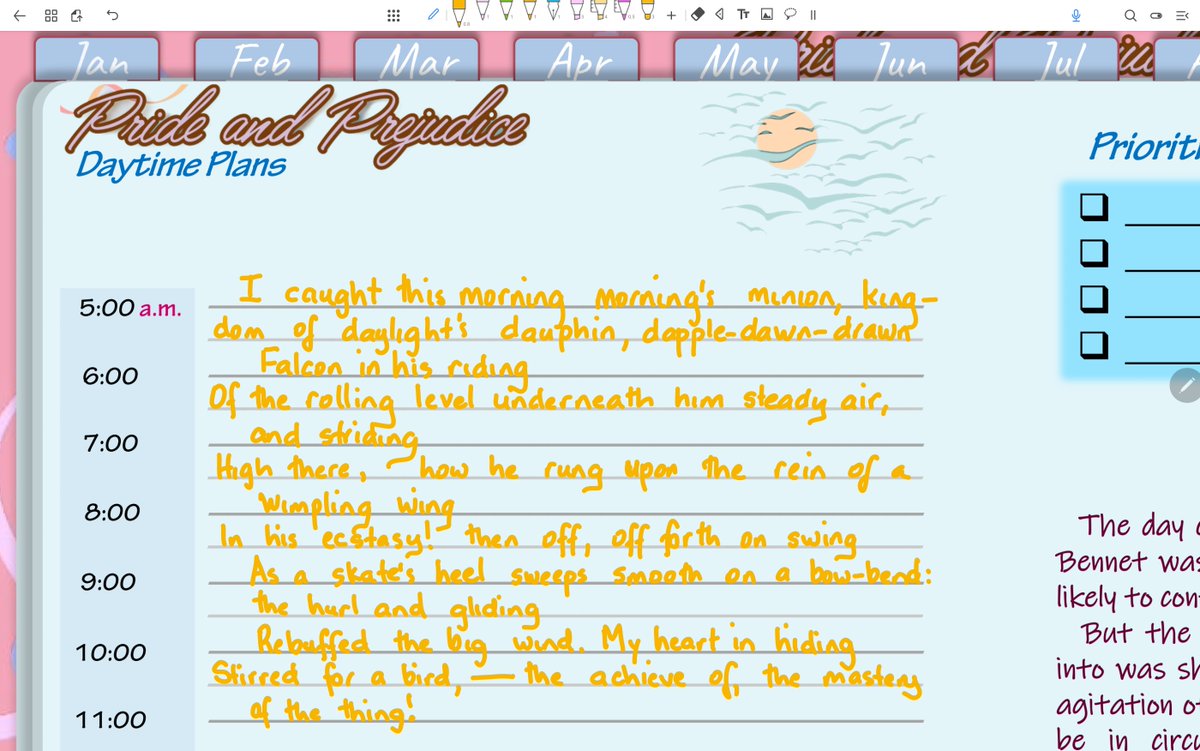 Jan Feb Mar Apr May Jun Jul
Pride and Prejudice
Daytime Plans
Prioriti
5:00 a.m.
I caught this morning morning's minion, king-
dom of daylight's dauphin, dapple-dawn-drawn
6:00
Falcon in his riding
Of the rolling level underneath him steady air,
7:00
and striding
High there, how he rung upon the rein of a
8:00
wimpling wing
In his ecstasy! then off, off forth on swing
9:00
As a skate's heel sweeps smooth on a bow-bend:
the hurl and gliding
10:00
Rebuffed the big wind. My heart in hiding
Stirred for a bird, — the achieve of, the mastery
11:00
of the thing!
The day o
Bennet was
likely to con
But the
into was sh
agitation of
be in circu